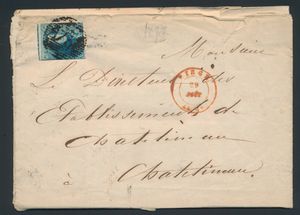 Monsieur
Le Directeur des
Etablissements de
Chatelineau
à Chatelineau